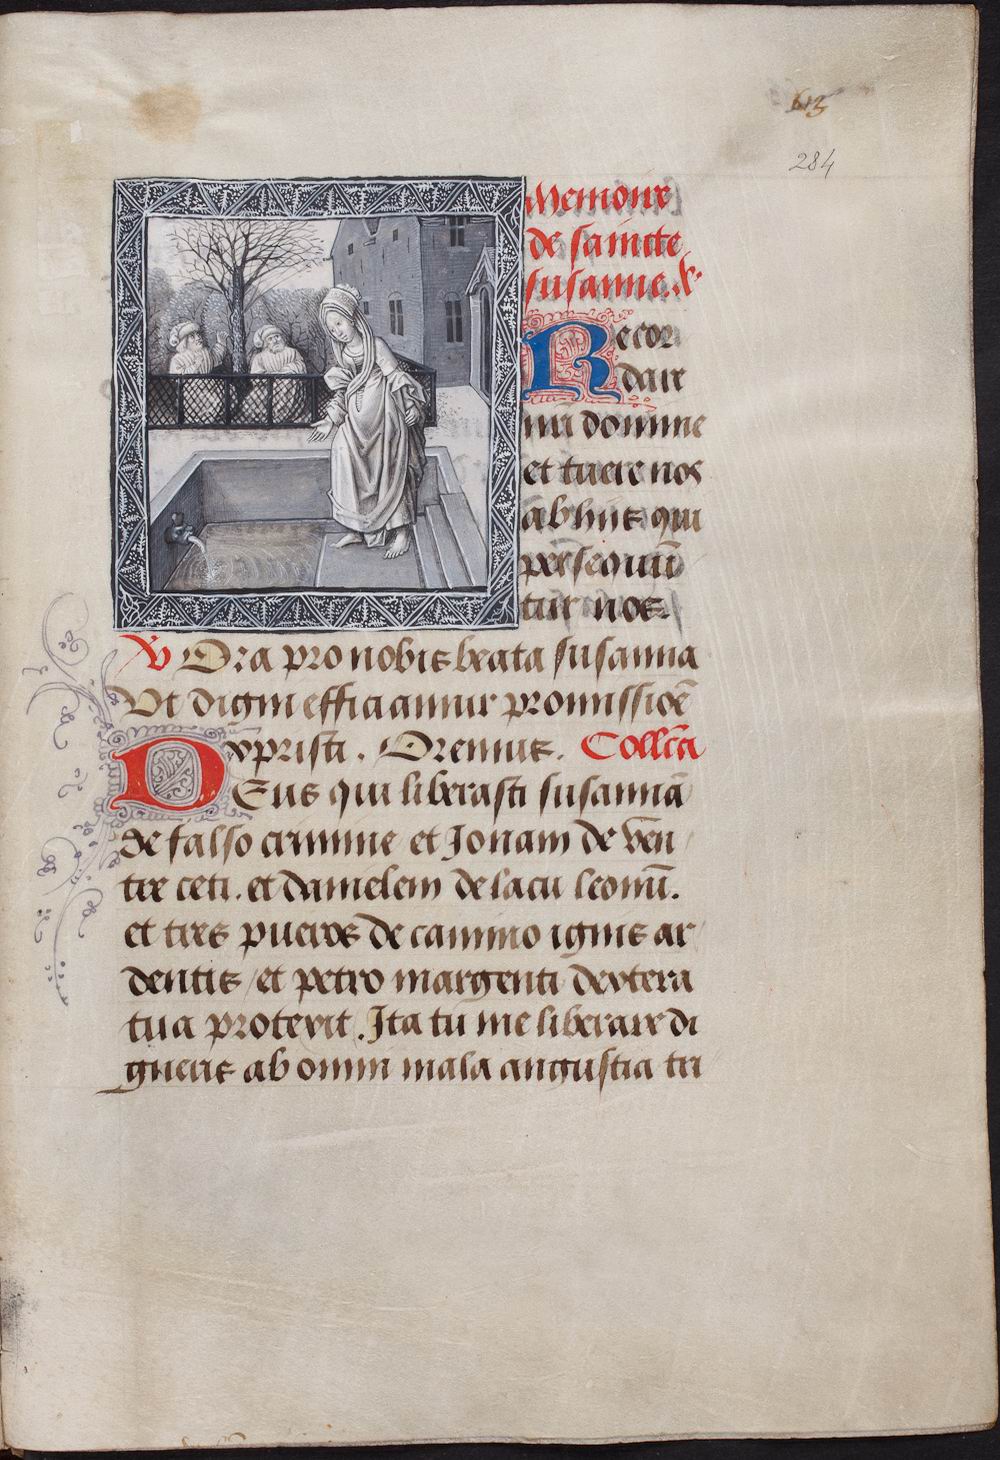 613
284
Memoire
de saincte
susanne. &
Recor
dare
mei domine
et tuere nos
ab hiis qui
persequū
tur nos.
V Ora pro nobis beata susanna
Ut digni efficiamur promissioē
xpristi. Oremus. Collcā
Deus qui liberasti susannā
de falso crimine et Jonam de ven
tre ceti. et danielem de lacu leonū.
et tres pueros de camino ignis ar
dentis / et petro margenti dextera
tua protexit. Ita tu me liberare di
gneris ab omni mala angustia tri